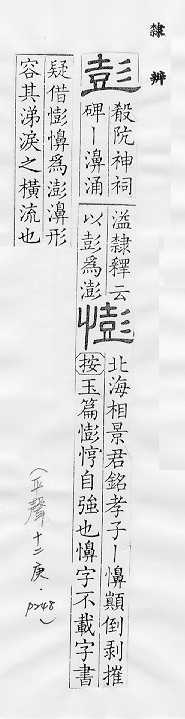 隸辨
彭
殽阬神祠
碑丨濞涌
溢隸釋云
以彭爲澎
憉
北海相景君銘孝子丨顛倒剥摧
按玉篇憉悙自強也字不載字書
疑借憉爲澎濞形
容其涕淚之橫流也
（平聲十二庚．P248）